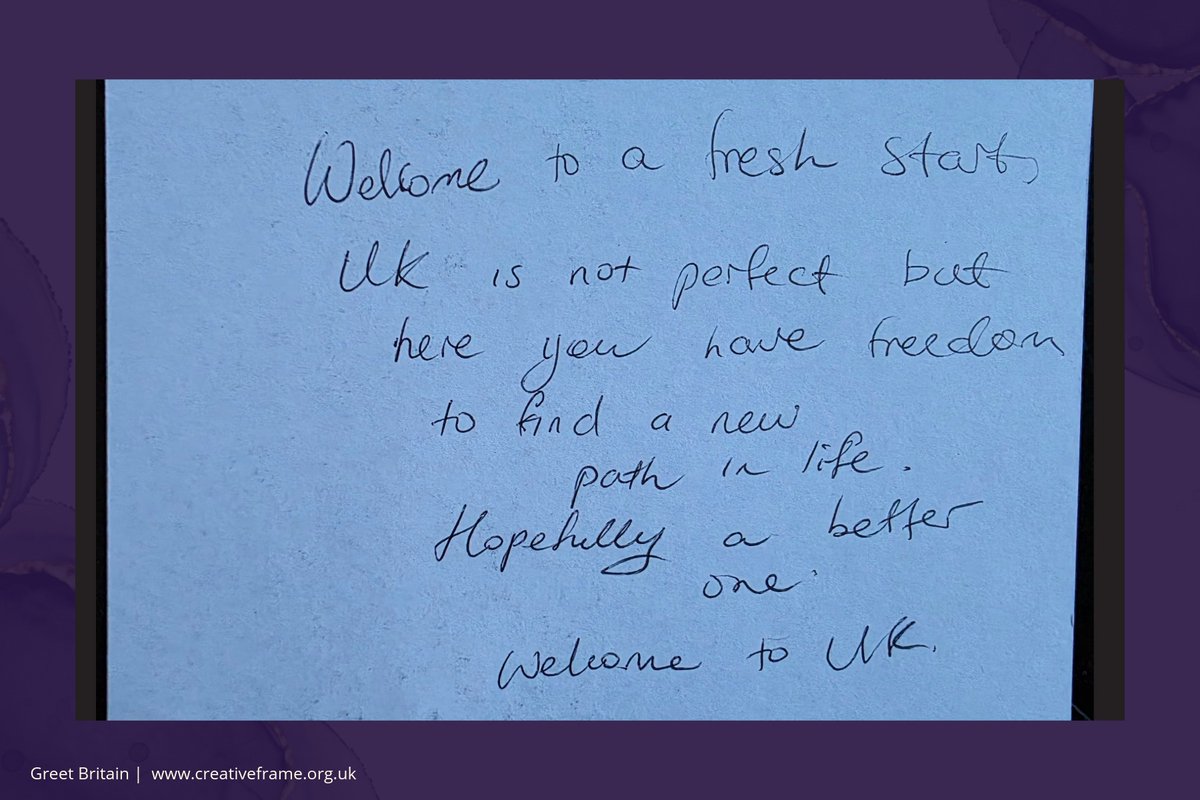 Welcome to a fresh start,
UK is not perfect but
here you have freedom
to find a new
path in life.
Hopefully a better
one.
Welcome to UK.
Greet Britain | www.creativeframe.org.uk